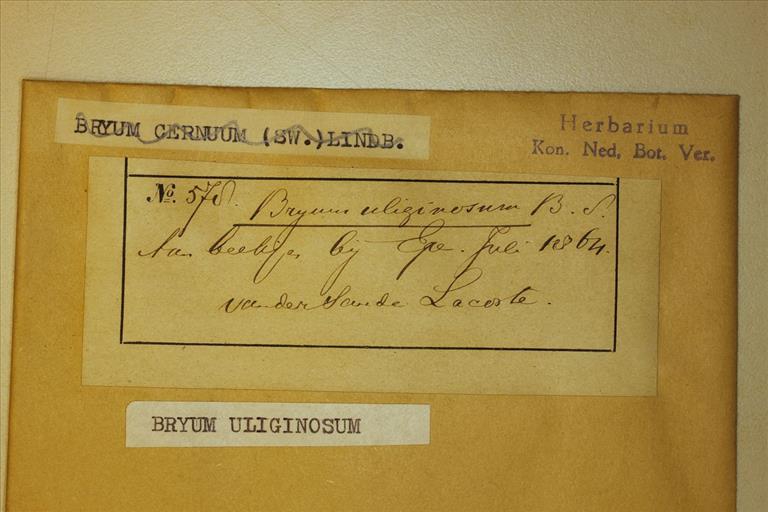 BRYUM CERNUUM (SW.) LINDB.
Herbarium
Kon. Ned. Bot. Ver.
No. 578. Bryum uliginosum B. S.
Aan beekjes bij Epe. Juli 1864.
van der Sande Lacoste.
BRYUM ULIGINOSUM